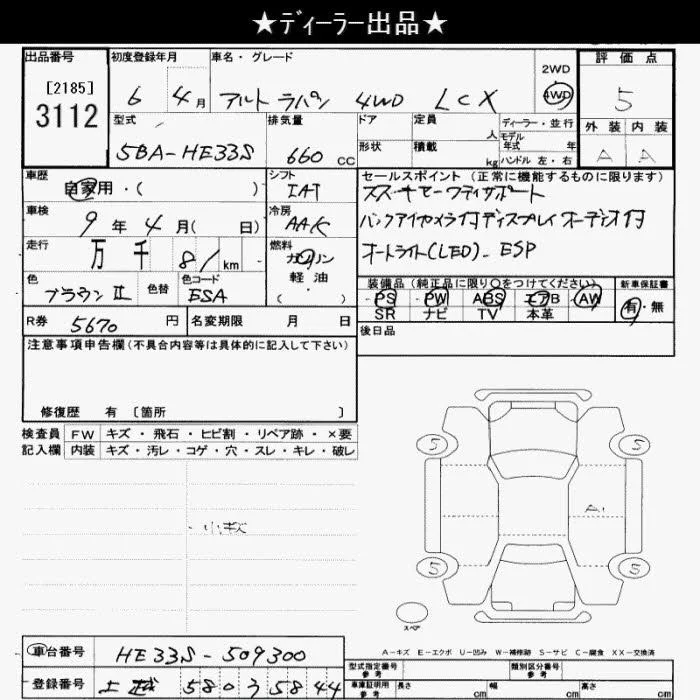 ★ディーラー出品★
出品番号 初度登録年月 車名・グレード 2WD 4WD 評価点
[2185]
3112 6 4月 アルト ラパン 4WD LCX 5
型式 排気量 ドア 定員 人 ディーラー・並行 外装 内装
モデル年式 年
5BA-HE33S 660 CC 形状 積載 kg ハンドル 左・右 A A
車歴 シフト セールスポイント (正常に機能するものに限ります)
自家用・( ) IAT スズキセーフティサポート
車検 冷房
9年 4月( 日) AAC バックアイカメラ付ディスプレイオーディオ付
走行 燃料
万 千 81 km ガソリン オートライト(LED). ESP
軽油
( )
色 色替 色コード 装備品 (純正品に限り○をつけてください) 新車保証書
ブラウンⅡ ESA PS PW ABS エアB AW 有・無
SR ナビ TV 本革
R券 5670 円 名変期限 月 日 後日品
注意事項申告欄(不具合内容等は具体的に記入して下さい)
修復歴 有 〔箇所 〕
検査員 FW キズ・飛石・ヒビ割・リペア跡・×要
記入欄 内装 キズ・汚レ・コゲ・穴・スレ・キレ・破レ
5 5
A1
5 5
スペア
A-キズ E-エクボ U-凹み W-補修跡 S-サビ C-腐食 XX-交換済
車台番号 HE33S-509300
型式指定番号 参考 類別区分番号 参考
登録番号 上越 580 ヲ 5844
車庫証明用 参考 長さ cm 幅 cm 高さ cm